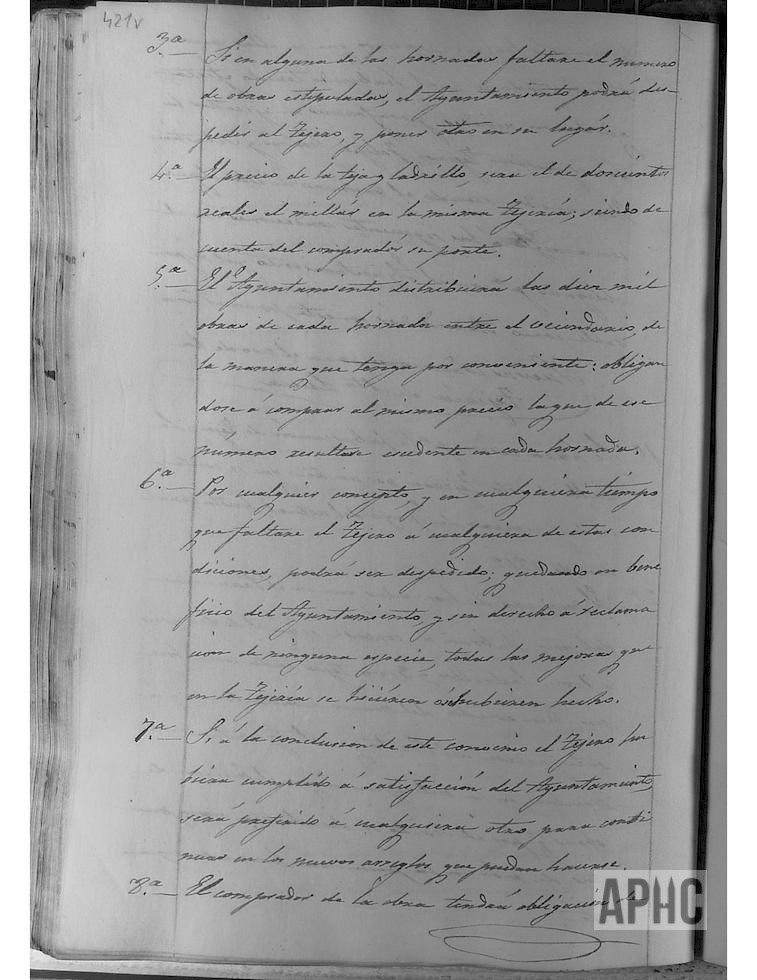 421v
3.ª Si en alguna de las hornadas faltare el numero
de obras estipuladas, el Ayuntamiento podrá des-
pedir al Tejero, y poner otro en su lugár.
4.ª El precio de la teja y ladrillo, sera el de doscientos
reales el millár en la misma Tejería; siendo de
cuenta del comprador su porte.
5.ª El Ayuntamiento distribuirá las diez mil
obras de cada hornada entre el vecindario, de
la manera que tenga por conveniente: obligan
dose á comprar al mismo precio la que de ese
numero resultase escedente en cada hornada.
6.ª Por cualquier concepto, y en cualquiera tiempo
que faltare el Tejero á cualquiera de estas con
diciones, podrá ser despedido; quedando en bene
ficio del Ayuntamiento, y sin derecho á reclama
cion de ninguna especie, todas las mejoras que
en la Tejería se hiciéren ó hubieren hecho.
7.ª Si á la conclusion de este convenio el Tejero hu
biera cumplido á satisfacción del Ayuntamiento,
será preferido á cualquiera otro para conti
nuar en los nuevos arreglos que puedan hacerse.
8.ª El comprador de la obra tendrá obligación de
APHC